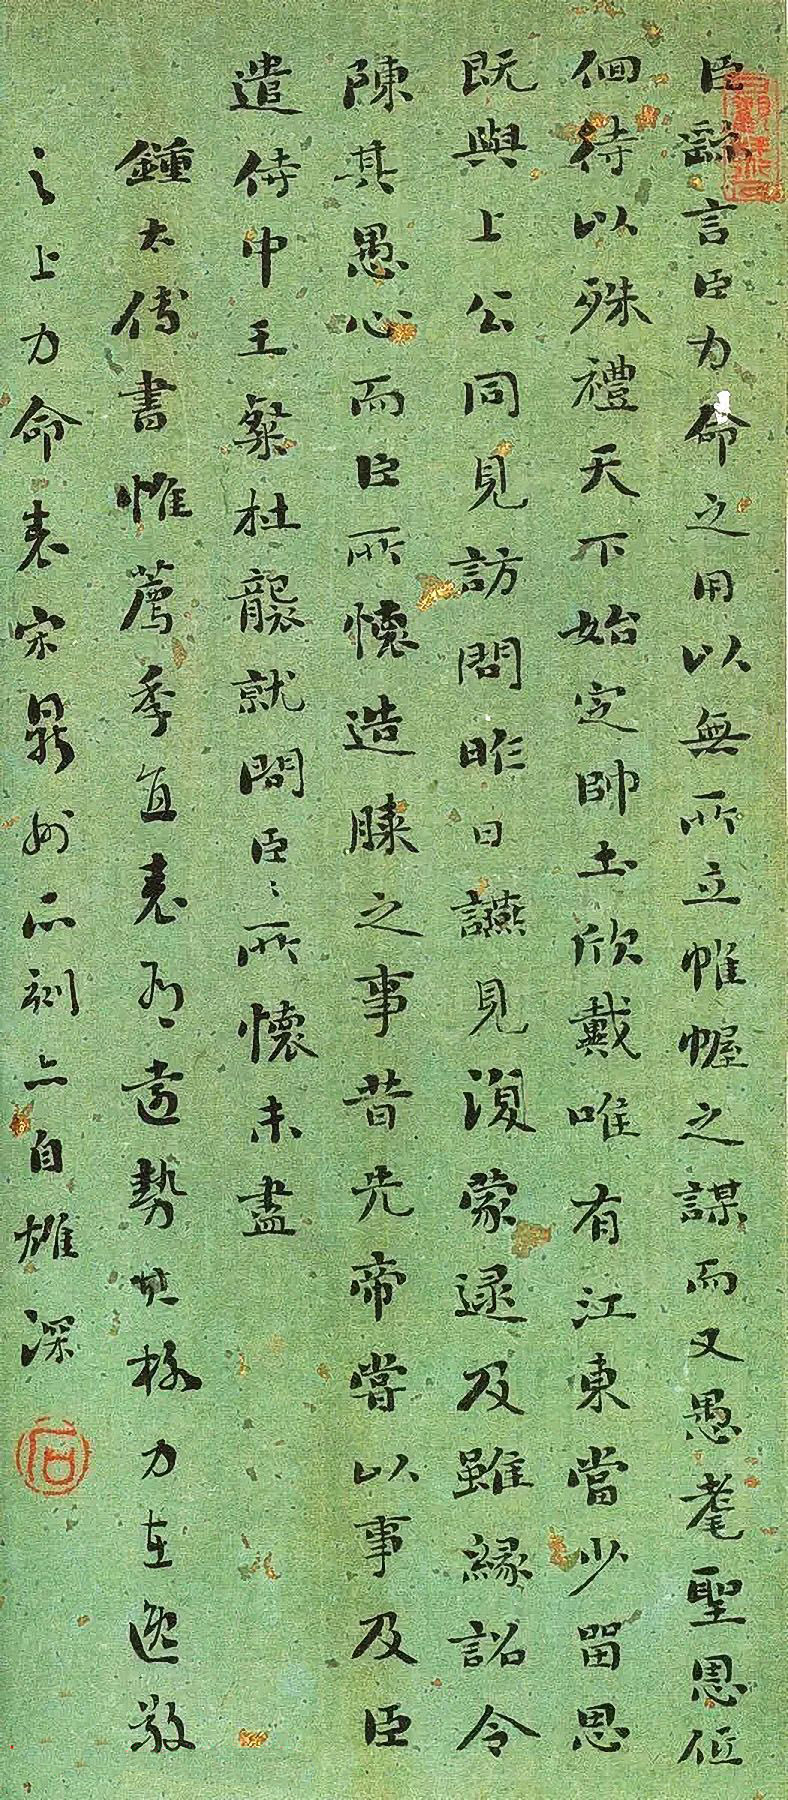 臣繇言臣力命之用以無所立帷幄之謀而又愚耄聖恩低
佪待以殊禮天下始定帥土欣戴唯有江東當少留思
既與上公同見訪問昨日讌見復蒙逮及雖緣詔令
陳其愚心而臣所懷造膝之事昔先帝嘗以事及臣
遣侍中王粲杜襲就問臣〻所懷未盡
鍾太傅書惟薦季直表勢其格力在逸敬
之上力命表宋鼎州石刻亦自雄深
石